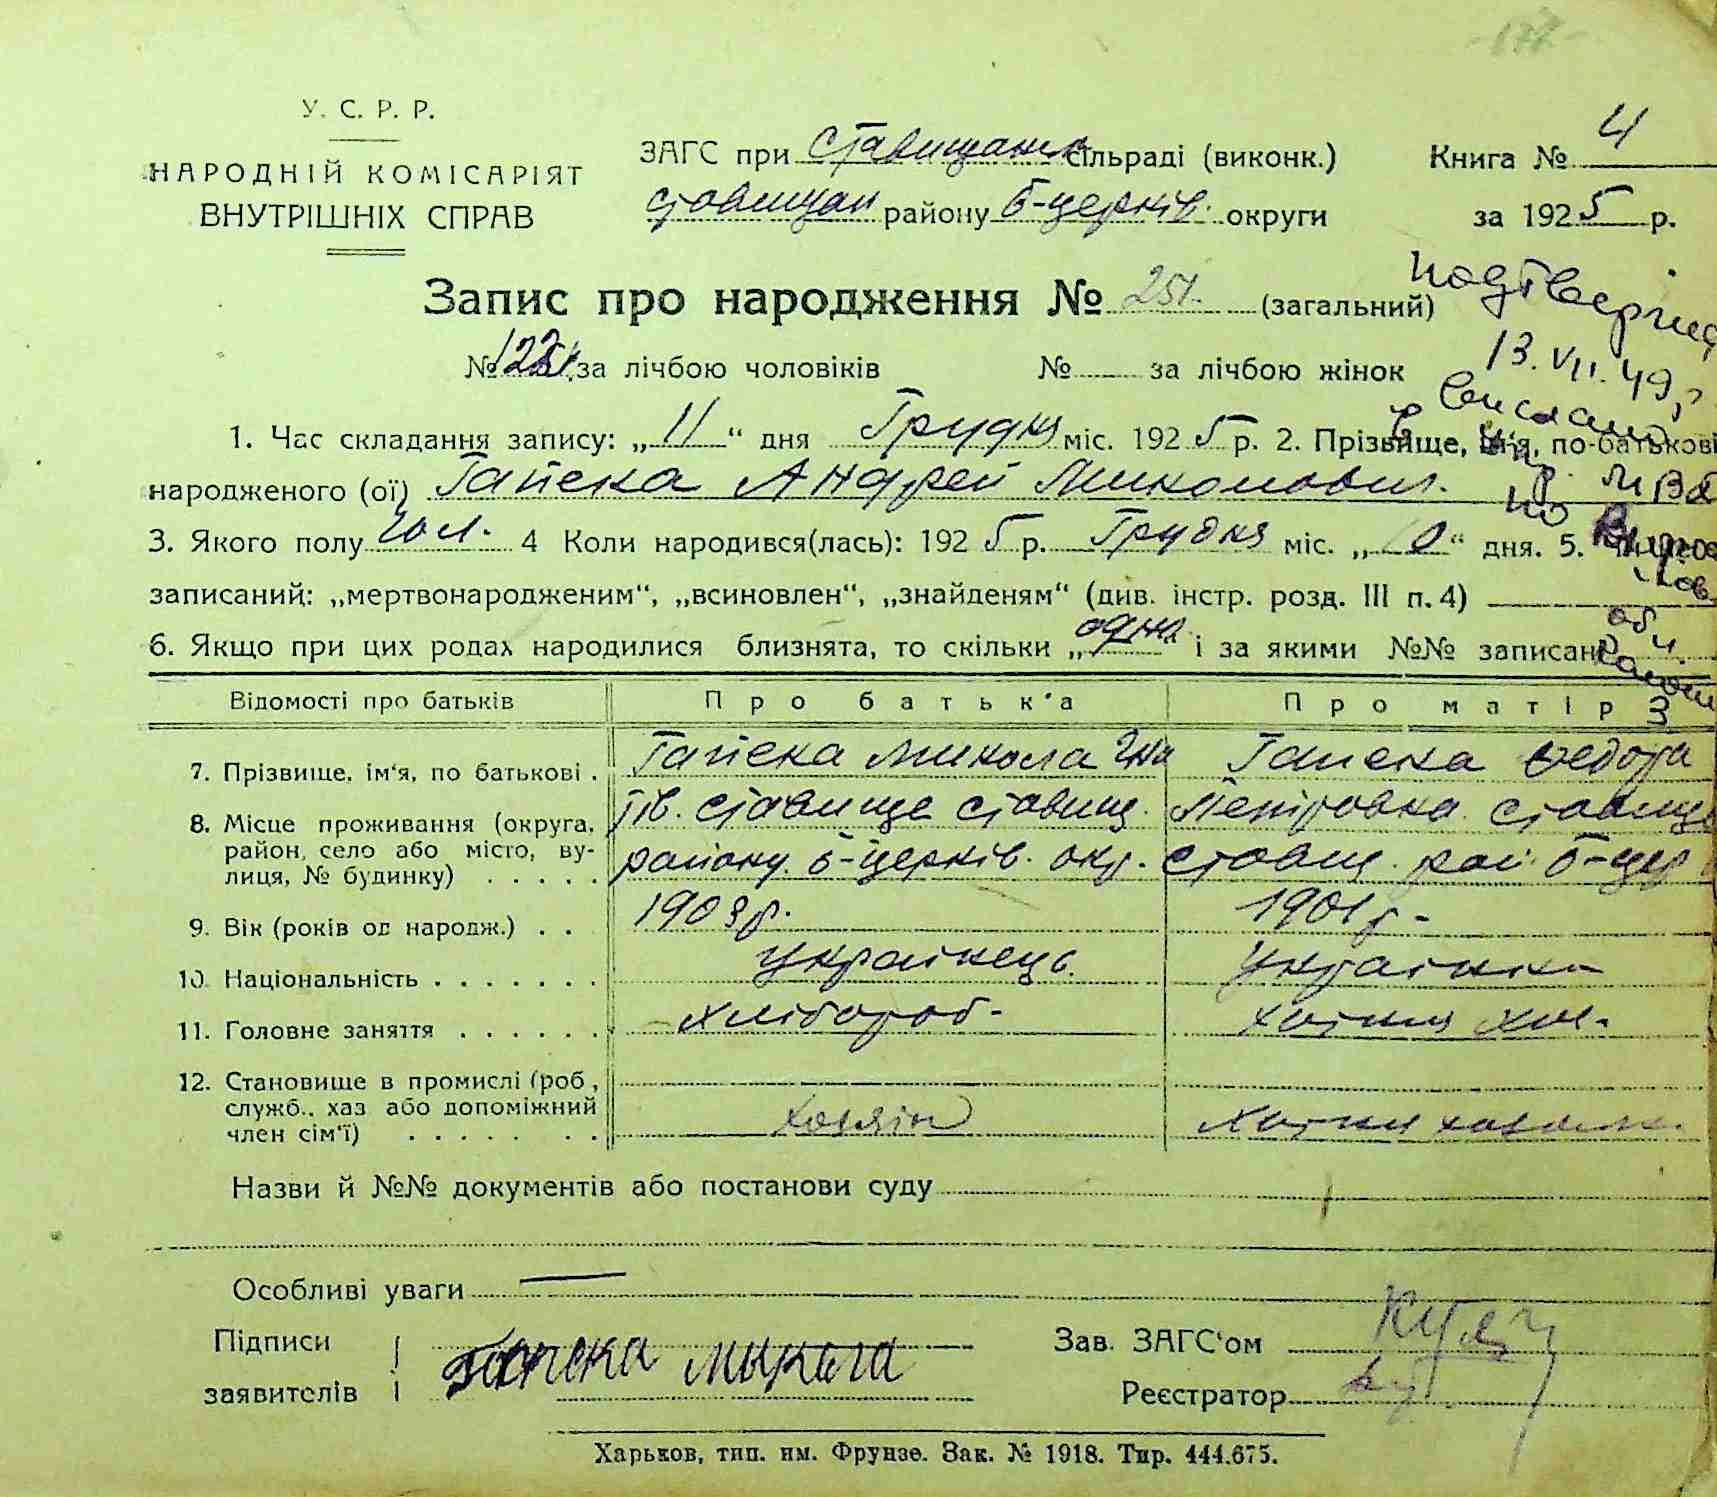 177
У. С. Р. Р.
НАРОДНІЙ КОМІСАРІЯТ
ВНУТРІШНІХ СПРАВ
ЗАГС при Ставищанск сільраді (виконк.)
Ставищан району Б-церків. округи
Книга № 4
за 1925 р.
Запис про народження № 251. (загальний)
№ за лічбою чоловіків № за лічбою жінок
Подтвержд
13.VII.49 г.
1. Час складання запису: „11“ дня Грудня міс. 1925 р. 2. Прізвище, ім'я, по-батькові
народженого (ої) Гапека Андрей Миколович.
3. Якого полу чол. 4 Коли народився(лась): 1925 р. Грудня міс. „ “ дня. 5.
записаний: „мертвонародженим“, „всиновлен“, „знайденям“ (див. інстр. розд. III п. 4)
6. Якщо при цих родах народилися близнята, то скільки „одно“ і за якими №№ записані
Відомості про батьків Про батьк'а Про матір
7. Прізвище, ім'я, по батькові . Гапека Микола Гна Гапека Федора
8. Місце проживання (округа, тів. Ставище Ставищ. Петровна Ставище
район, село або місто, ву- району. Б-церків. окр. Ставищ. рай. Б-цер
лиця, № будинку) . . . . .
9. Вік (років од народж.) . . 1903 р. 1901 р.
10. Національність . . . . . . . Українець. Українка
11. Головне заняття . . . . . . Хлібороб. Хатня хоз.
12. Становище в промислі (роб.,
служб., хаз або допоміжний
член сім'ї) . . . . . . . Хозяїн Хатня хозяйк.
Назви й №№ документів або постанови суду
Особливі уваги —
Підписи
заявителів Гапека Микола
Зав. ЗАГС'ом
Реєстратор
Харьков, тип. им. Фрунзе. Зак. № 1918. Тир. 444.675.